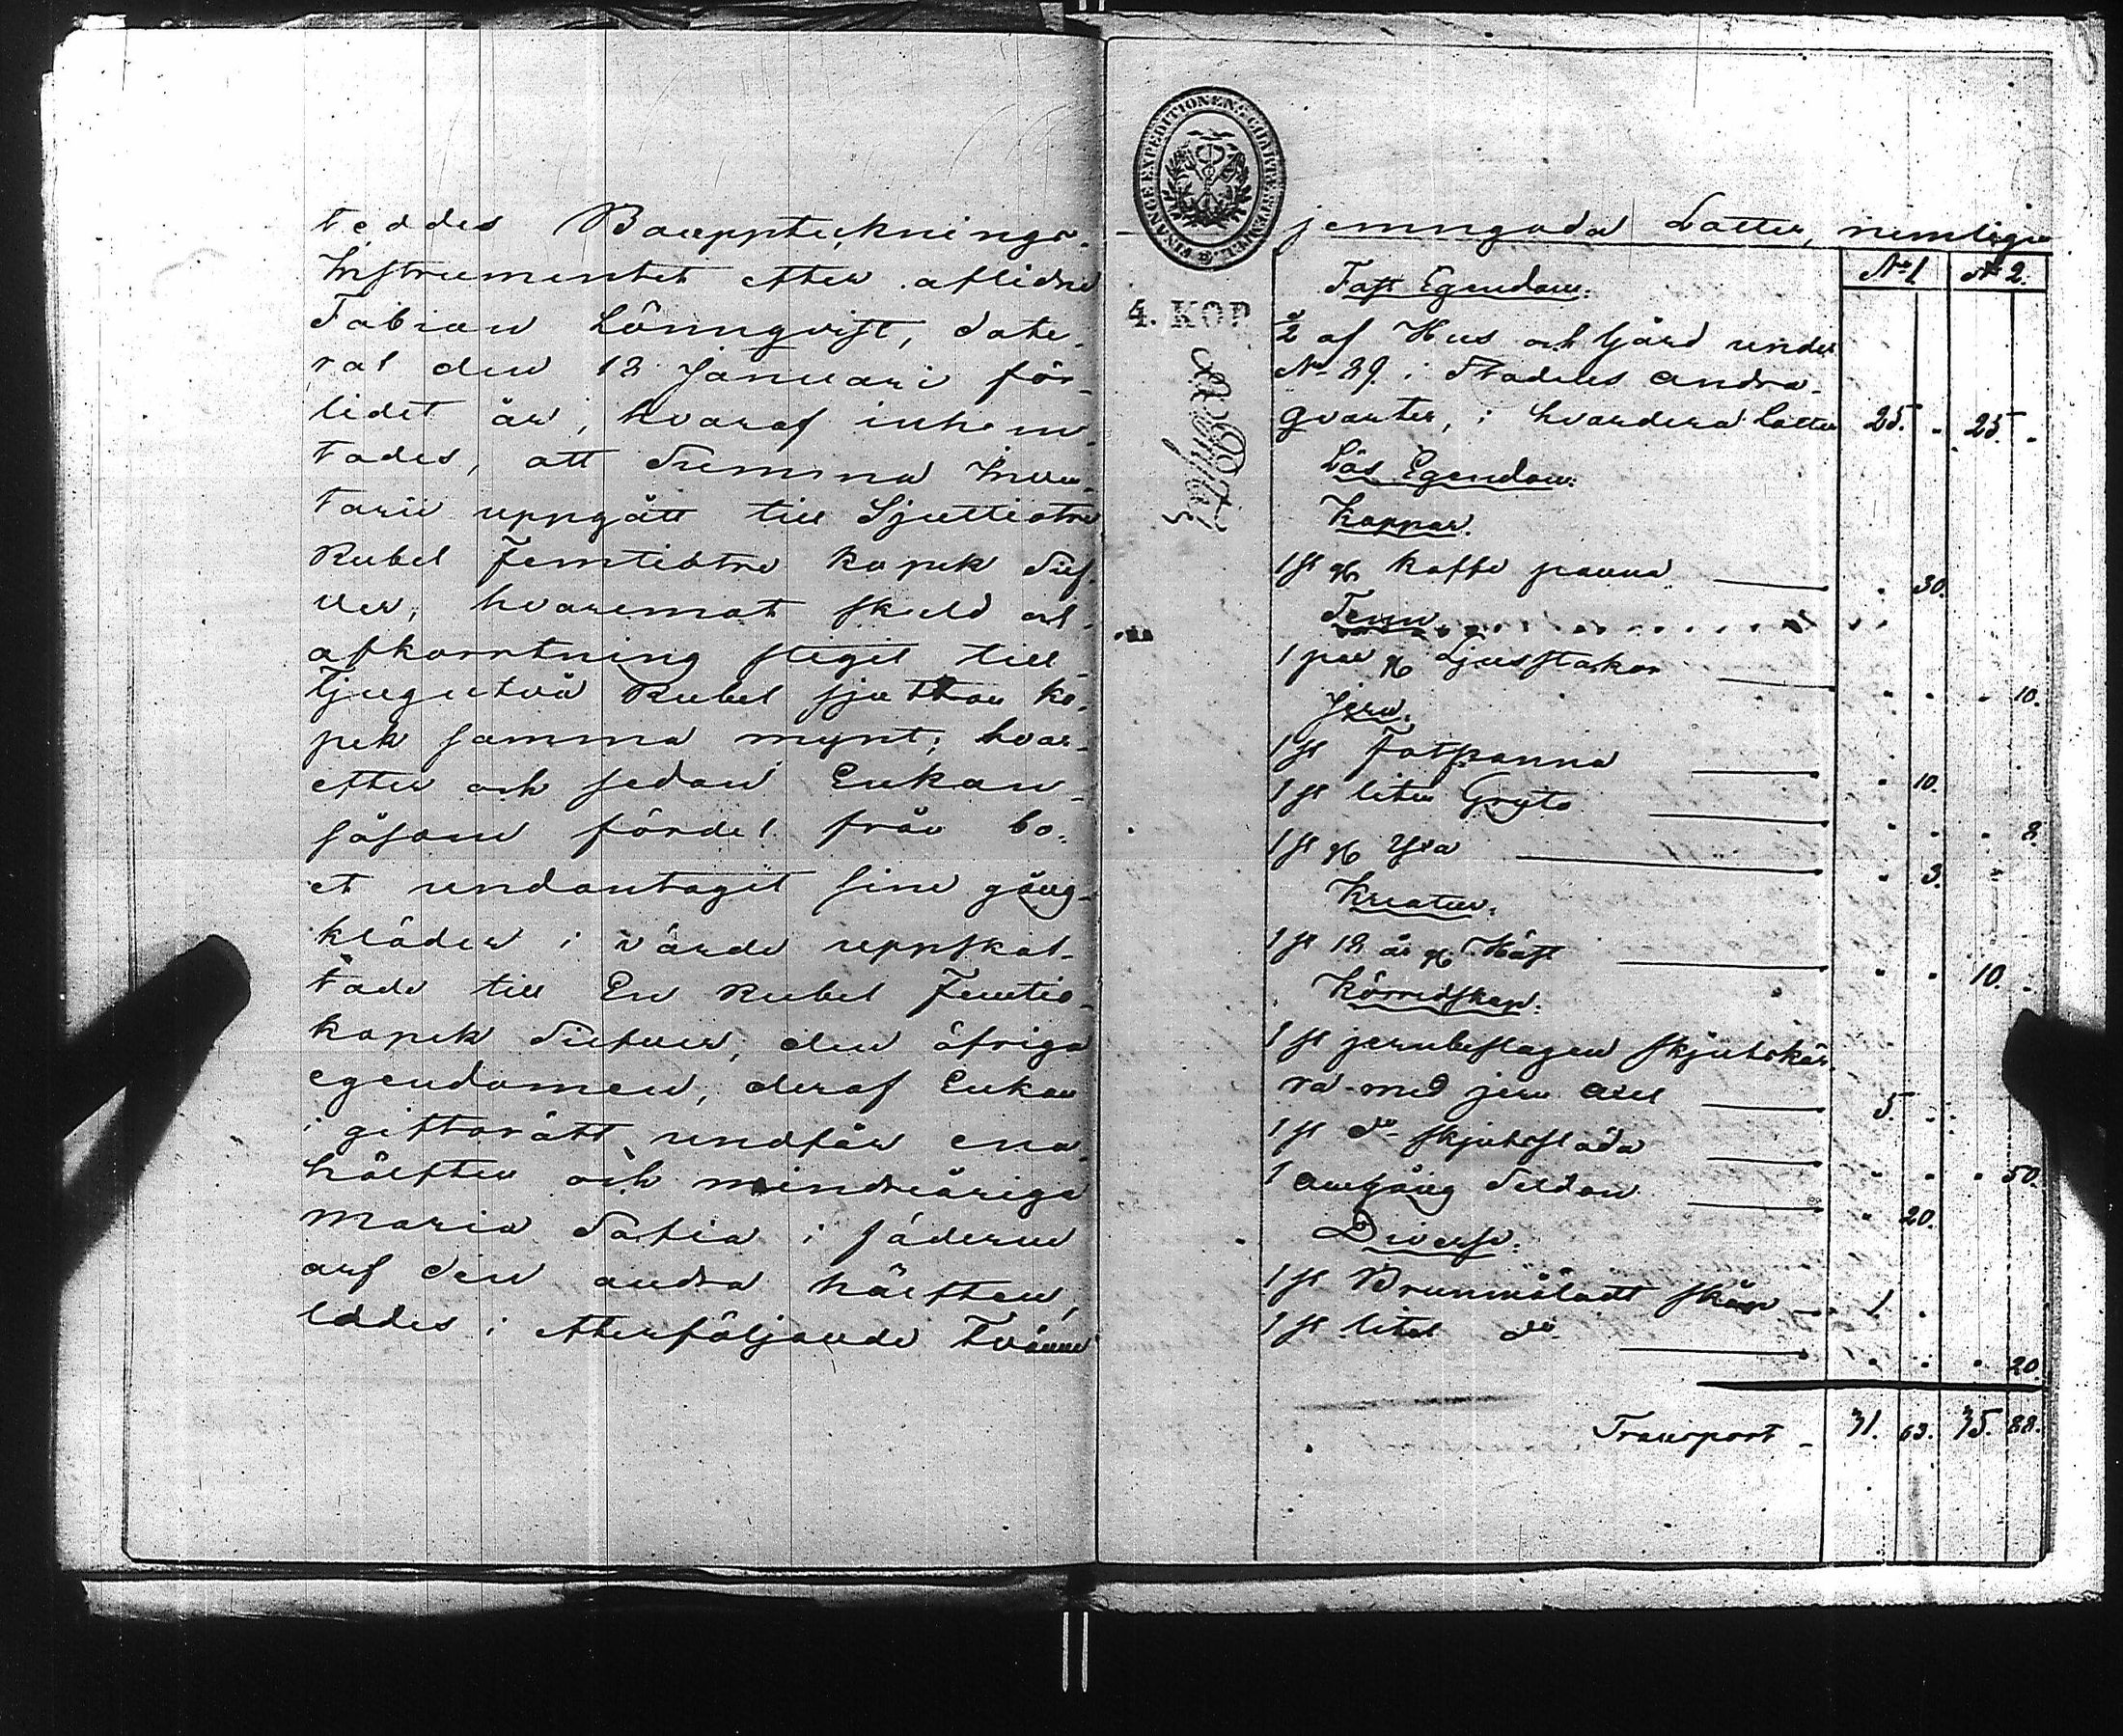 teddes Bouppteknings-
Instrumentet efter aflidne
Fabian Lönnqvist, date-
rat den 12 Januariför-
lidet år, hvaraf inhem-
tades, att Summa Inven-
tarii uppgått till Sjuttiotre
Rubel Femtiotre kopek Silf-
ver, hvaremot skuld och
afkorrtning stigit till
tjugutvå Rubel sjutton ko-
pek samma mynt; hvar-
efter och sedan Enkan
såsom fördel från bo-
et undantagit sine gång-
kläder i värde uppskat-
tade till En Rubel Femtio
kopek Silfver, den öfriga
egendomen, deraf Enkan
i giftorätt undfår ena
hälften och minderåriga
Maria Sofia i fäderne
arf den andra hälften,
lades i efterföljande Tvänne
FINANCE EXPEDITIONENS CHARTÆ STEMPEL
4. KOP
jemngoda Lotter, nemligen
No 1 No 2.
Fast Egendom.
1/2 af Hus och Gård under
No 29. i Stadens andra
qvarter, i hvardera lotten 25. " 25 "
Lös Egendom.
Koppar.
1 st gl Kaffe panna " 30.
Tenn
1 par gl Ljusstakar " " " 10.
Jern.
1 st Fatpanna " 10.
1 st liten Gryta " " " 8.
1 st gl Yxa " 3. "
Kreatur.
1 st 12 år gl Häst " " 10. "
Körredskap.
1 st jernbeslagen skjutskär-
ra med jern axel 5. "
1 st do skjutssläda " " " 50.
1 omgång Seldon " 20.
Diverse.
1 st Brunmåladt skåp 1 "
1 st litet do " " " 20.
Transport 31. 63. 35. 88.